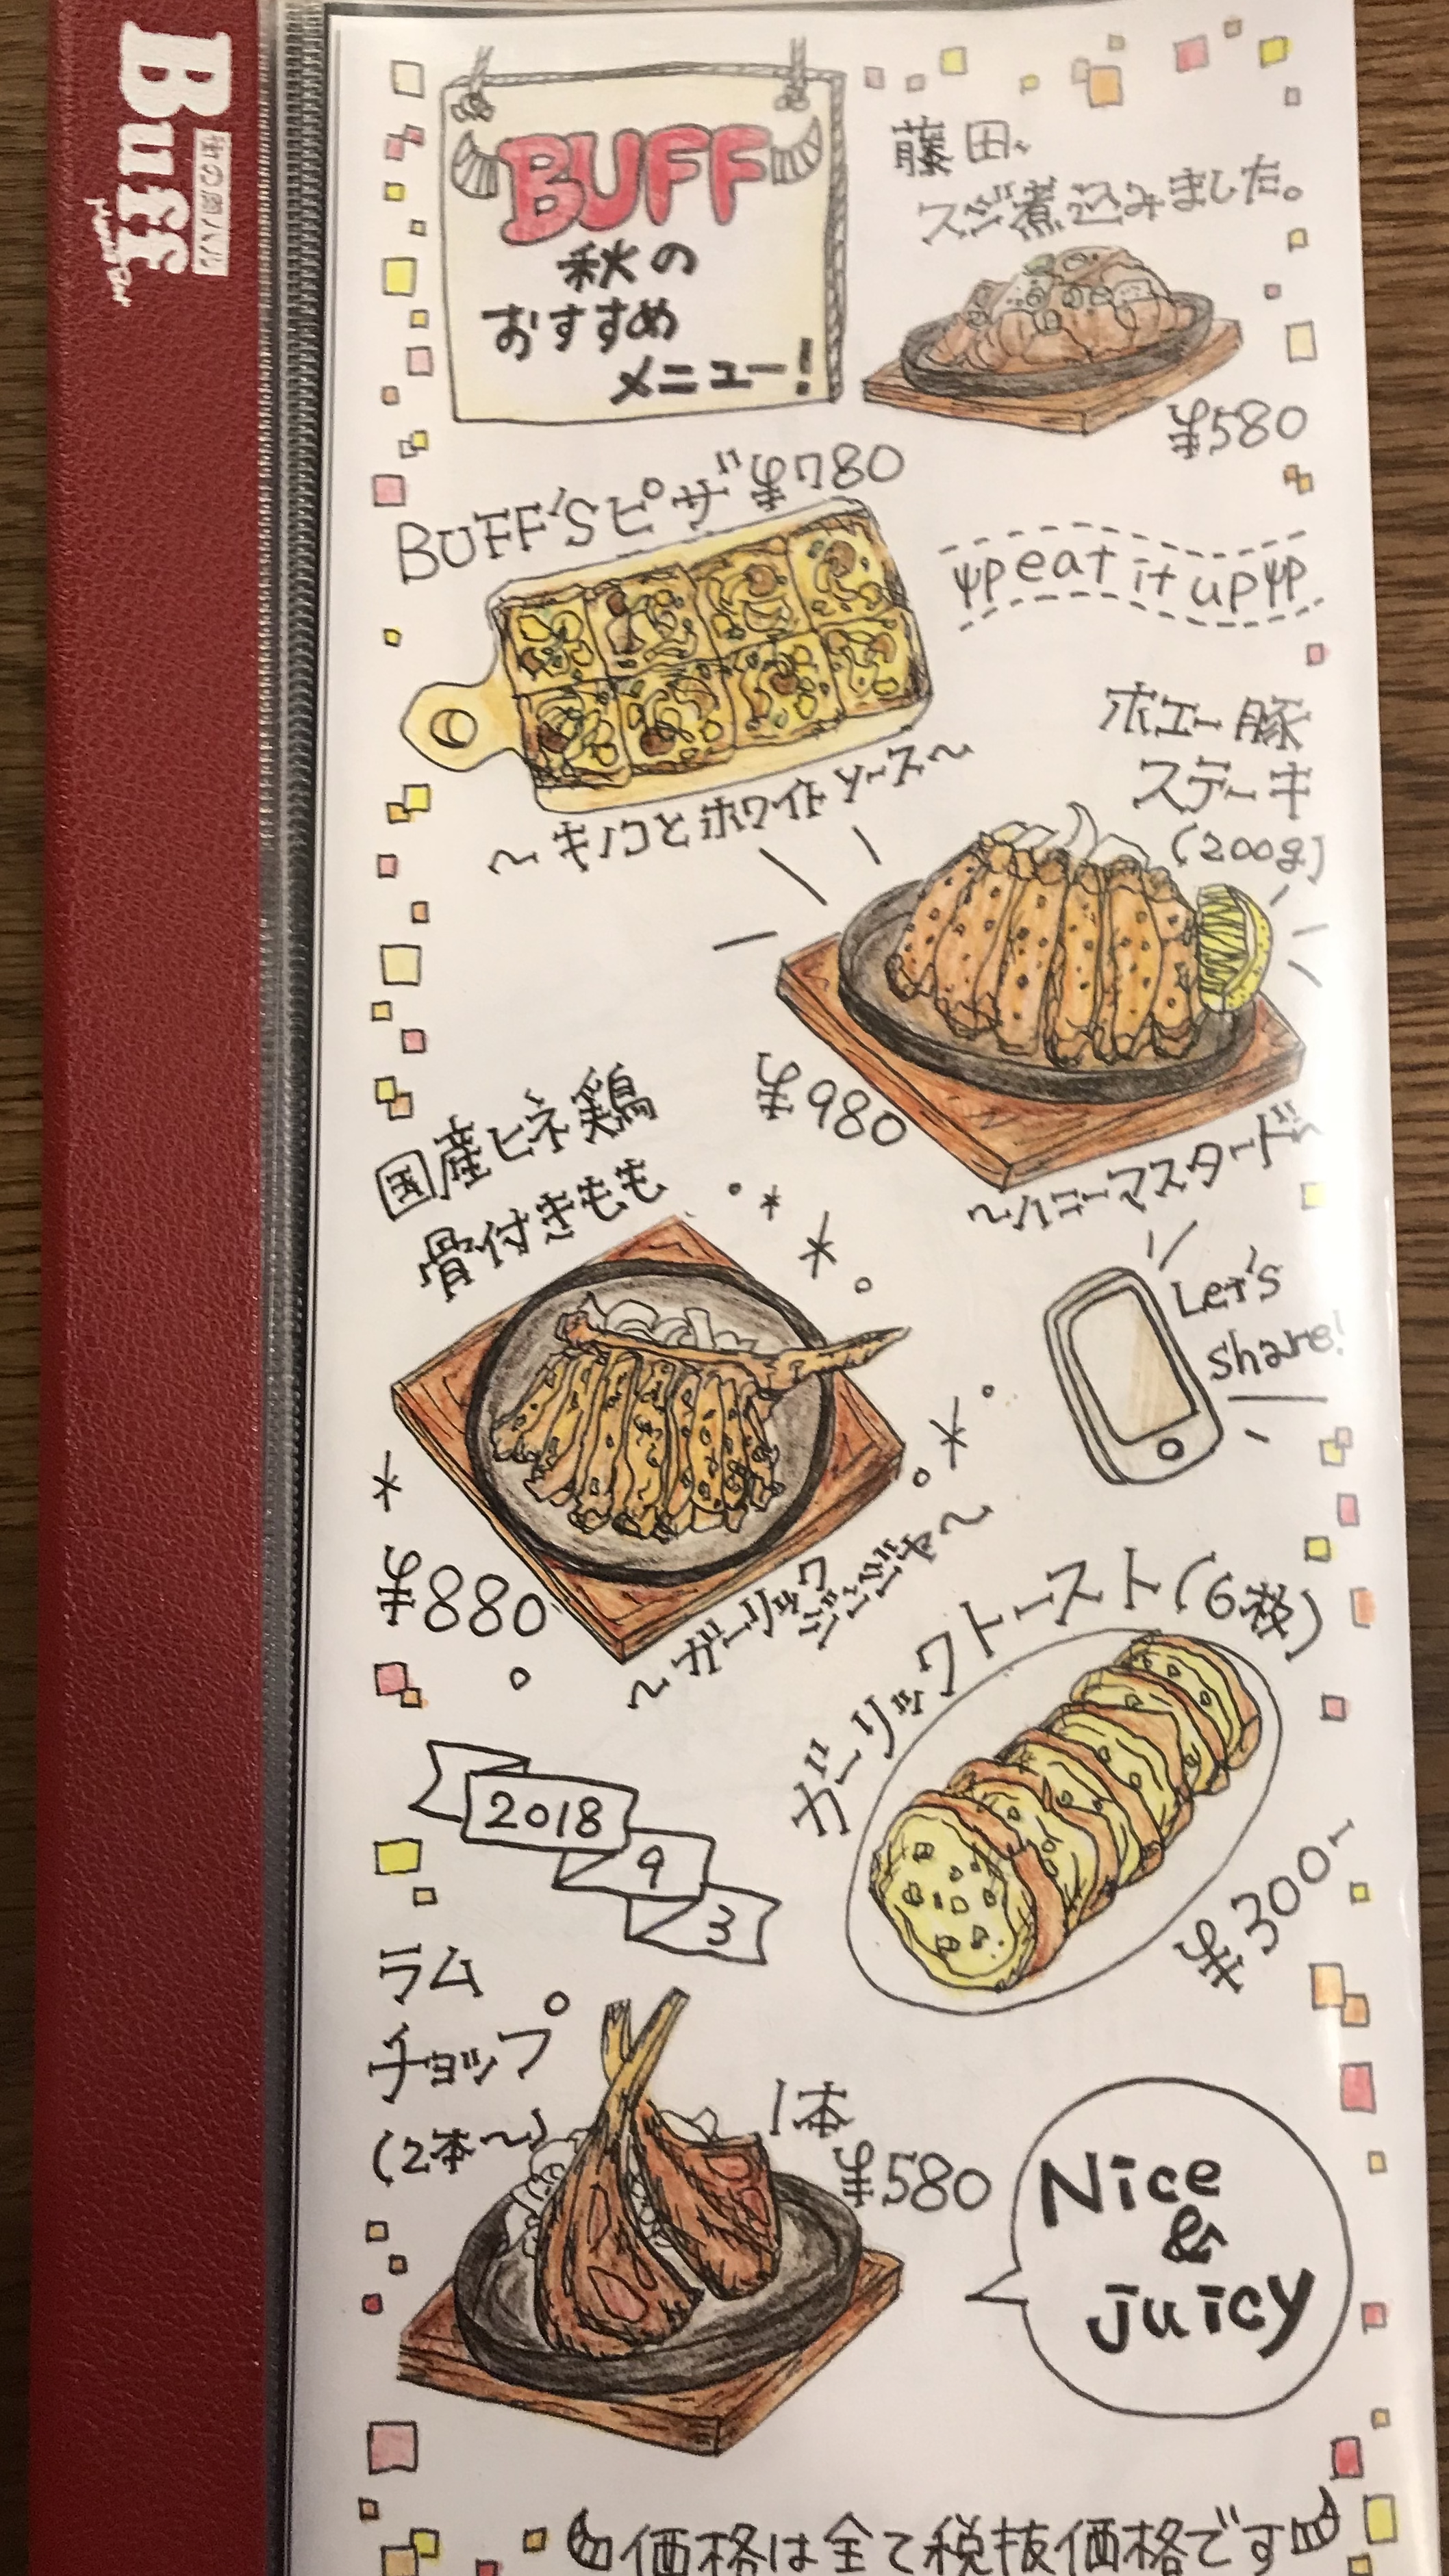 Buff
街の肉バル
BUFF
秋の
おすすめ
メニュー!
藤田、
スジ煮込みました。
¥580
BUFF'Sピザ ¥780
~キノコとホワイトソース~
eat it up
ホエー豚
ステーキ
(200g)
¥980
~ハニーマスタード~
国産ヒネ鶏
骨付きもも
¥880
~ガーリック
ジンジャー~
Let's
share!
ガーリックトースト(6枚)
¥300-
2018
9
3
ラム
チョップ
(2本~)
1本
¥580
Nice
&
juicy
価格は全て税抜価格です